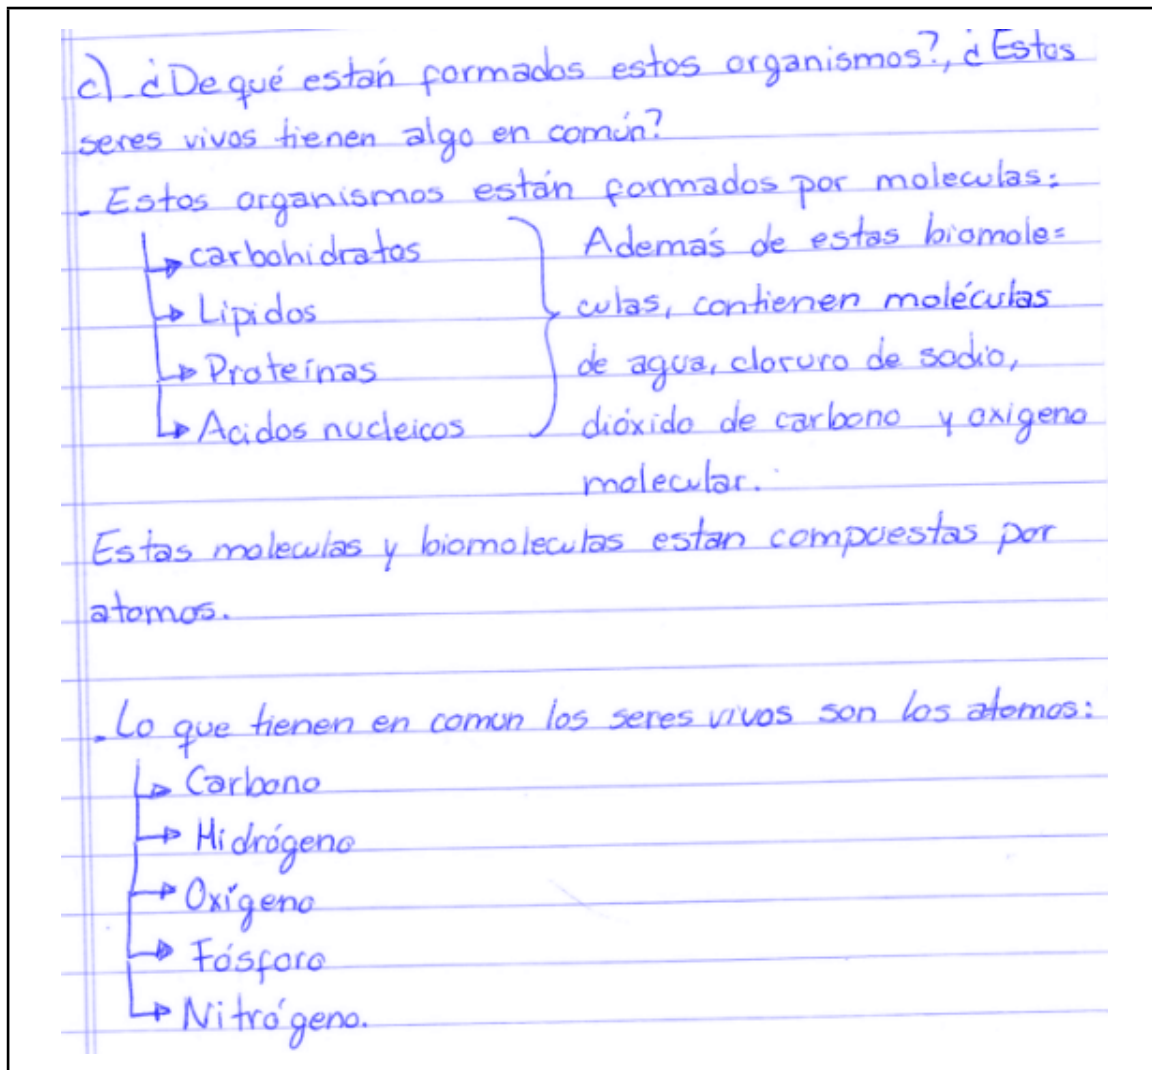 c).- ¿De qué están formados estos organismos?, ¿Estos
seres vivos tienen algo en común?
- Estos organismos están formados por moleculas:
carbohidratos
Lípidos
Proteínas
Acidos nucleicos
Además de estas biomole=
culas, contienen moléculas
de agua, cloruro de sodio,
dióxido de carbono y oxigeno
molecular.
Estas moleculas y biomoleculas estan compuestas por
atomos.
- Lo que tienen en comun los seres vivos son los atomos:
Carbono
Hidrógeno
Oxígeno
Fósforo
Nitrógeno.